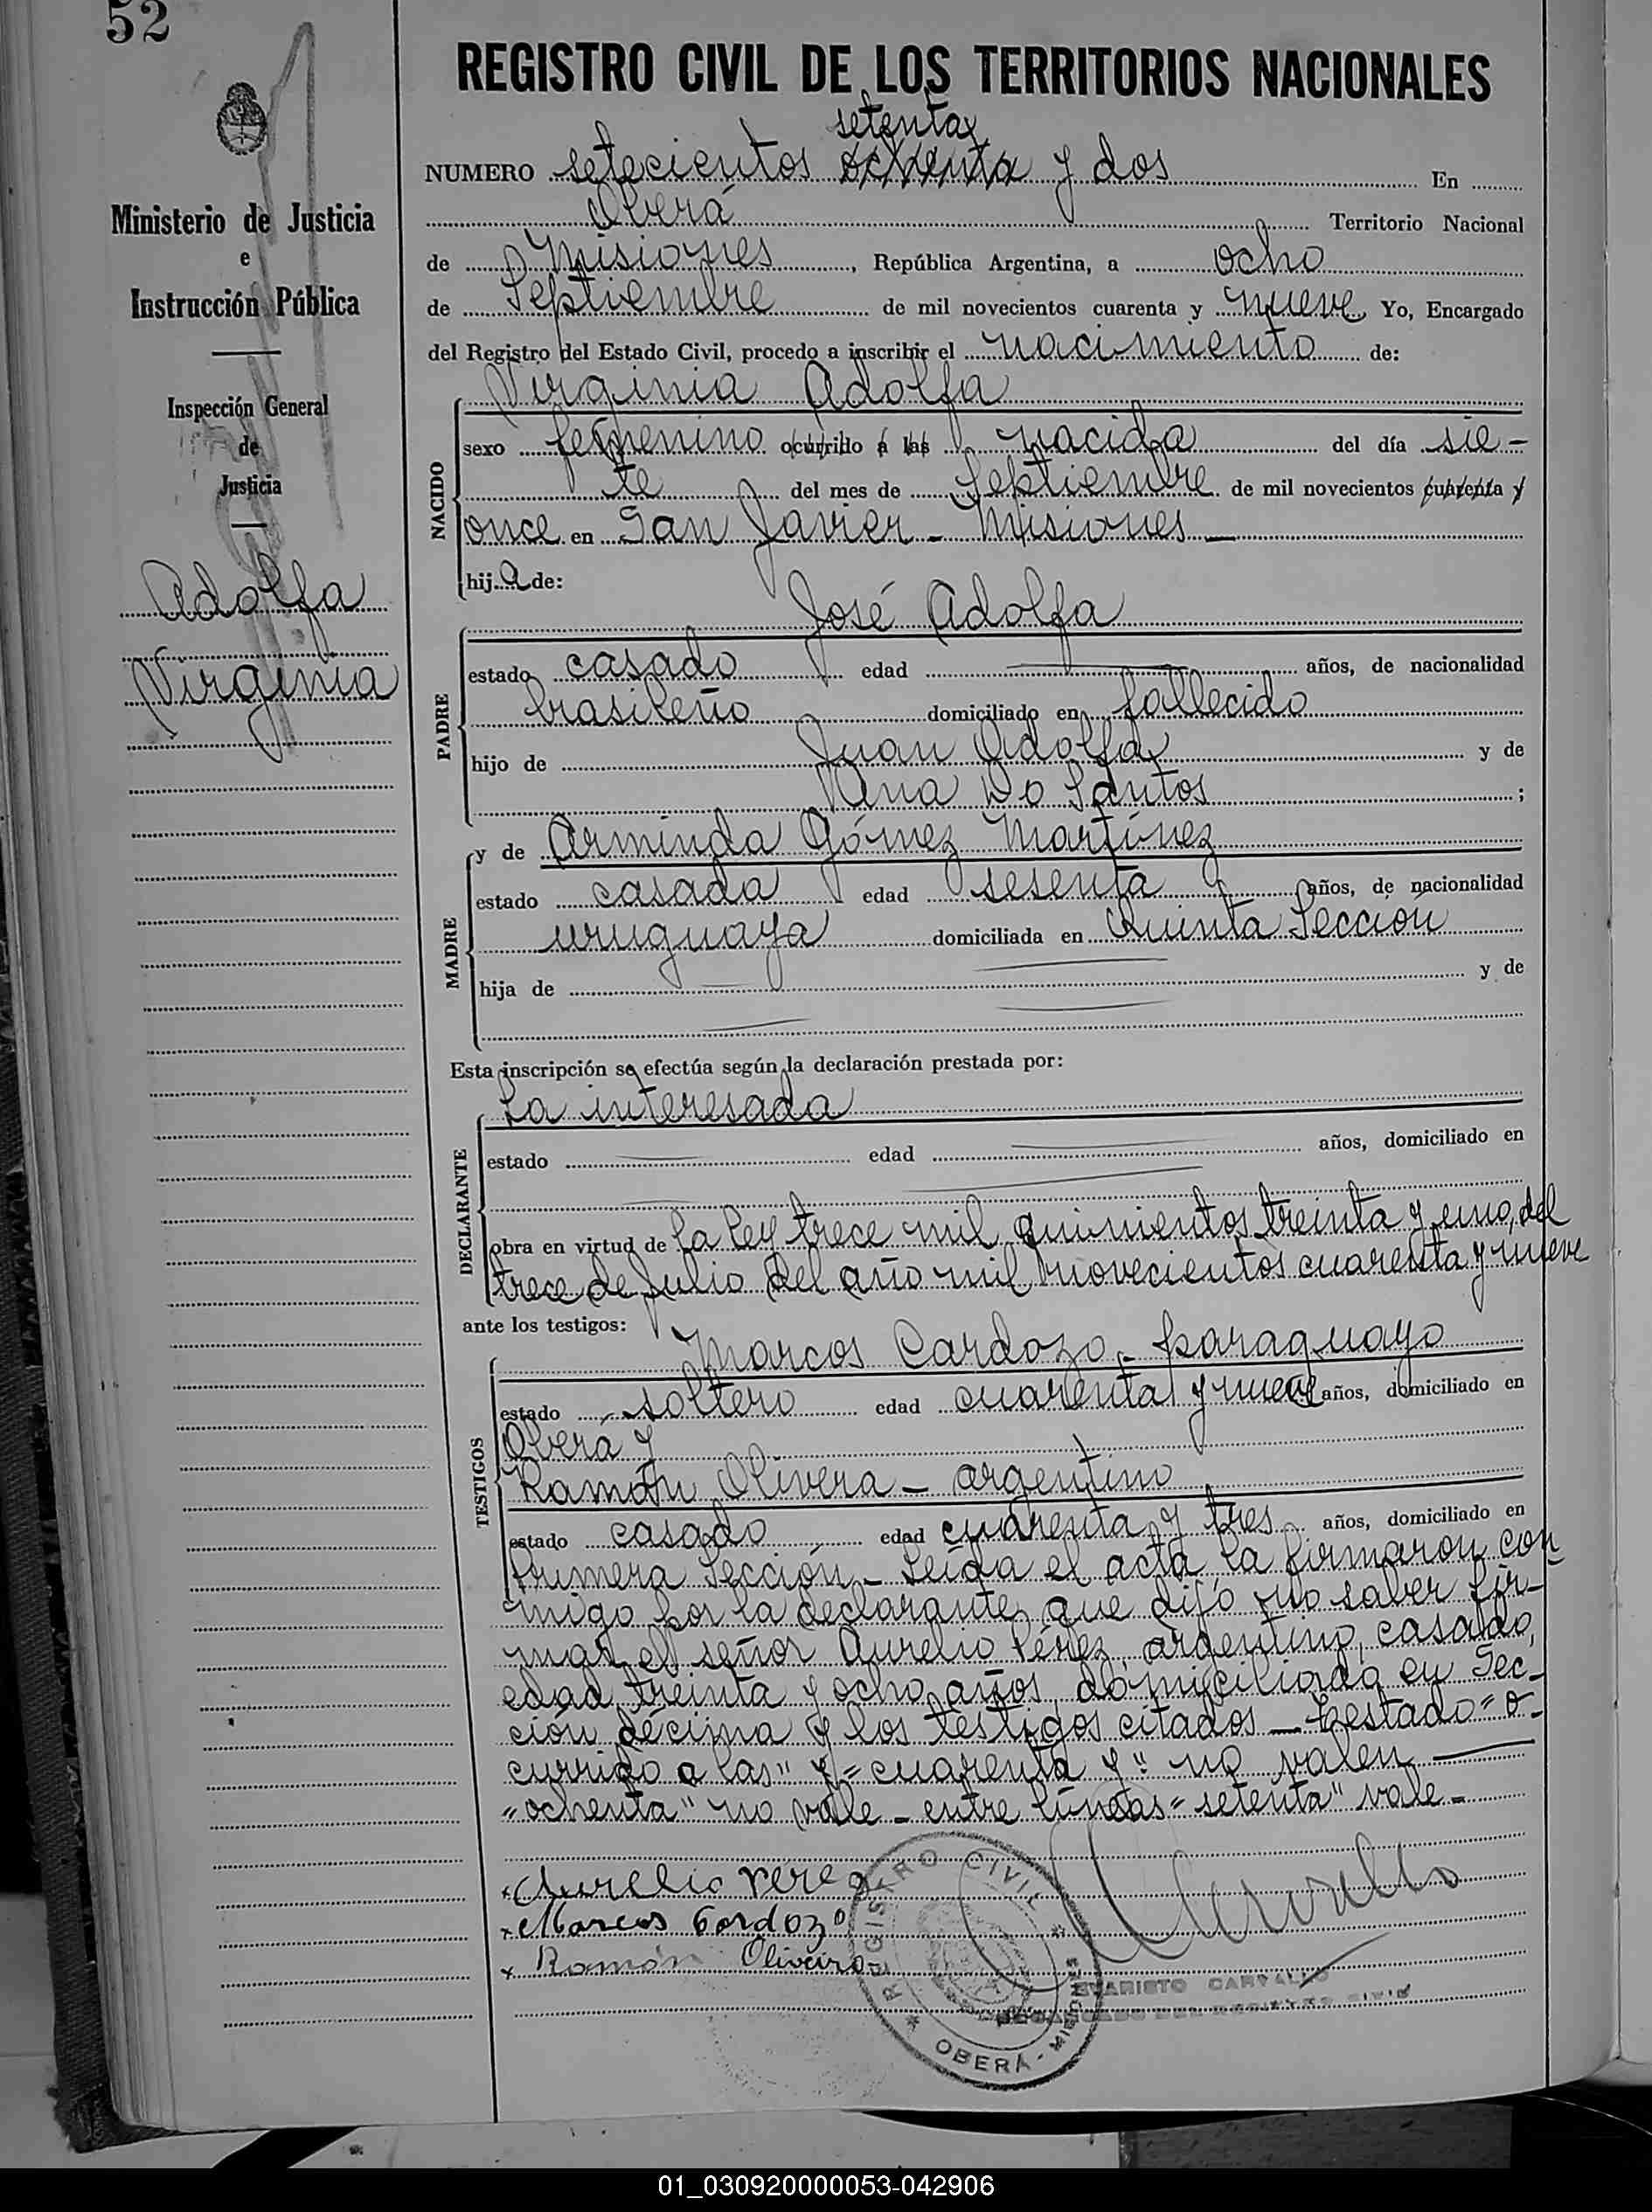 52
REGISTRO CIVIL DE LOS TERRITORIOS NACIONALES
Ministerio de Justicia
e
Instrucción Pública
Inspección General
de
Justicia
Adolfa
Virginia
setenta
NUMERO setecientos ochenta y dos En
Oberá Territorio Nacional
de Misiones, República Argentina, a ocho
de Septiembre de mil novecientos cuarenta y nueve Yo, Encargado
del Registro del Estado Civil, procedo a inscribir el nacimiento de:
NACIDO
Virginia Adolfa
sexo femenino ocurrido a las nacida del día sie-
te del mes de Septiembre de mil novecientos cuarenta y
once en San Javier - Misiones
hija de:
PADRE
José Adolfa
estado casado edad años, de nacionalidad
brasileño domiciliado en fallecido
hijo de Juan Adolfa y de
Ana Do Santos ;
MADRE
y de Arminda Gómez Martínez
estado casada edad sesenta años, de nacionalidad
uruguaya domiciliada en Quinta Sección
hija de y de
Esta inscripción se efectúa según la declaración prestada por:
DECLARANTE
La interesada
estado edad años, domiciliado en
obra en virtud de la ley trece mil quinientos treinta y uno, del
trece de Julio del año mil novecientos cuarenta y nueve
ante los testigos:
TESTIGOS
Marcos Cardozo - paraguayo
estado soltero edad cuarenta y nueve años, domiciliado en
Oberá y
Ramón Olivera - argentino
estado casado edad cuarenta y tres años, domiciliado en
primera Sección - Leída el acta la firmaron con
migo por la declarante que dijo no saber fir-
mar el señor Aurelio Pérez, argentino, casado,
edad treinta y ocho años, domiciliado en Sec-
ción décima y los testigos citados - Testado "o-
currido a las" y "cuarenta y" no valen
"ochenta" no vale - entre líneas "setenta" vale -
Aurelio Perez
Marcos Cardozo
Ramón Oliveira
REGISTRO CIVIL
OBERÁ - MISIONES
EVARISTO CARVALLO
ENCARGADO DEL REGISTRO CIVIL
01_030920000053-042906